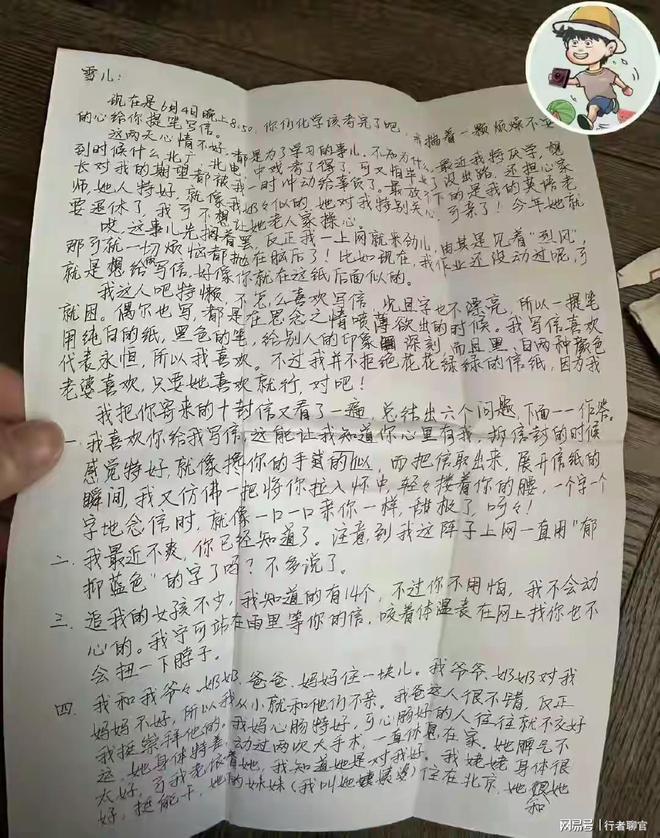 雪儿：
现在是6月4日晚上8:50，你们化学该考完了吧，我揣着一颗烦燥不安
的心给你提笔写信。
这两天心情不好，都是为了学习的事儿，不知为什么，最近我特厌学，想
到时候什么北广、北电、中戏考了得了，可又怕毕业了没出路，还担心家
长对我的期望都被我一时冲动给辜负了。最放不下的是我的英语老
师，她人特好，就像我奶々似的，她对我特别关心，可亲了！今年她就
要退休了，我可不想让她老人家操心。
哎，这事儿先搁着罢，反正我一上网就来劲儿，由其是见着“烈风”，
那可就一切烦恼都抛在脑后了！比如现在，我作业还没动过呢，可
就是想给你写信，好像你就在这纸后面似的。
我这人吧特懒，不怎么喜欢写信，况且字也不漂亮，所以一提笔
就困。偶尔也写，都是在思念之情喷薄欲出的时候。我写信喜欢
用纯白的纸，黑色的笔，给别人的印象深刻，而且黑、白两种颜色
代表永恒，所以我喜欢。不过我并不拒绝花花绿绿的信纸，因为我
老婆喜欢，只要她喜欢就行，对吧！
我把你寄来的十封信又看了一遍，总结出六个问题，下面一一作答。
一、我喜欢你给我写信，这能让我知道你心里有我，拆信封的时候
感觉特好，就像搀你的手似的，而把信取出来，展开信纸的
瞬间，我又仿佛一把将你拉入怀中，轻々搂着你的腰，一个字一个
字地念信时，就像一口一口亲你一样，甜极了，呵々！
二、我最近不爽，你已经知道了。注意到我这阵子上网一直用“郁
抑蓝色”的字了吗？不多说了。
三、追我的女孩不少，我知道的有14个，不过你不用怕，我不会动
心的。我宁可站在雨里等你的信，咬着体温表在网上找你也不
会扭一下脖子。
四、我和我爷々、奶奶、爸爸、妈妈住一块儿。我爷爷、奶奶对我
妈妈不好，所以我从小就和他们不亲。我爸这人很不错，反正
我挺崇拜他的，我妈心肠特好，可心肠好的人往往就不交好
运，她身体特差，动过两次大手术，一直休息在家。她脾气不
太好，可我老依着她，我知道她是对我好。我姥姥身体很
好，挺能干，她的妹妹（我叫她姨姥婆）住在北京，她和她
网易号 | 行者聊官